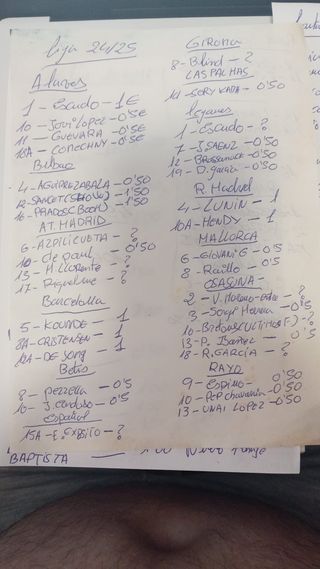 Liga 24/25
Alaves
1 - Escudo - 1€
10 - Javi Lopez - 0'5€
11 - GUEVARA - 0'5€
18A - CONECHNY - 0'5€
Bilbao
4 - AGUIRREZABALA - 0'50
12 - SANCET - 1'50
16 - PRADOS - 1'50
AT. MADRID
6 - AZPILICUETA - ?
10 - de paul - 0'50
13 - M. LLorente - ?
17 - Riquelme - ?
Barcelona
5 - KOUNDE - 1
8A - CRISTENSEN - 1
12A - DE Jong - 1
Betis
8 - pezzella - 0'5
10 - J. Cardoso - 0'5
Español
15A - E. EXPOSITO - ?
BAPTISTA
GIRONA
8 - Blind - ?
LAS PALMAS
- 0'50
Leganes
1 - escudo - ?
7 - J. SAENZ - 0'50
12 - - 0'50
19 - D. garcia - 0'50
R. Madrid
4 - LUNIN - 1
10A - MENDY - 1
MALLORCA
6 - GIOVANI G - 0'5
8 - Raillo - 0'5
OSASUNA
2 - - ?
3 - Sergi Herrera - 0'5
10 -
13 - P. Ibañez - 0'5
18 - R. GARCIA - ?
RAYO
9 - Espino - 0'50
10 - Pep chavarria - 0'50
13 - UNAI LOPEZ - 0'50